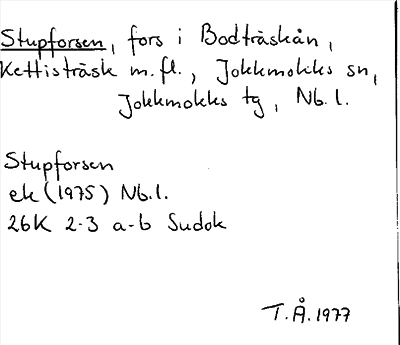 Stupforsen, fors i Bodträskån,
Kettisträsk m.fl., Jokkmokks sn,
Jokkmokks tg, Nb.l.
Stupforsen
ek (1975) Nb.l.
26K 2-3 a-b Sudok
T.Å. 1977